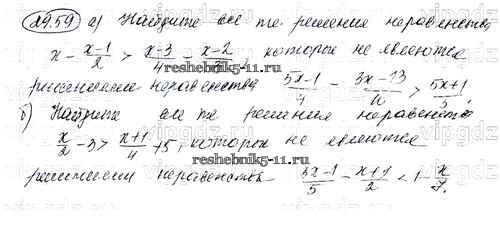 29.59 а) Найдите все те решения неравенства
x - \frac{x-1}{2} > \frac{x-3}{4} - \frac{x-2}{3}, которые не являются
решениями неравенства \frac{5x-1}{4} - \frac{3x-13}{10} > \frac{5x+1}{3}.
б) Найдите все те решения неравенства
\frac{x}{2} - 3 > \frac{x+1}{4} + 5, которые не являются
решениями неравенства \frac{3x-1}{5} - \frac{x+1}{2} < 1 - \frac{x}{7}.
reshebnik5-11.ru
reshebnik5-11.ru
vipgdz.ru